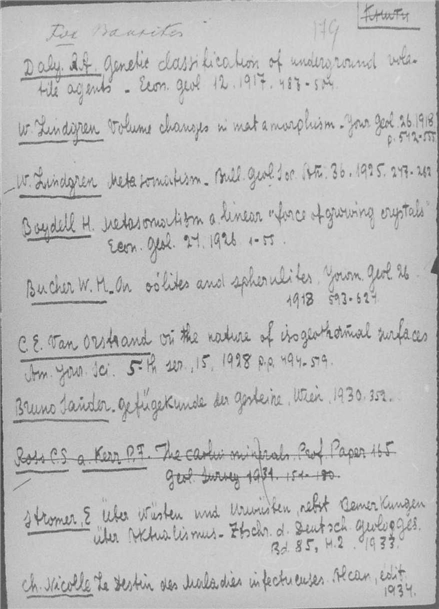 For Bauxites 179
Daly. R.A. Genetic classification of underground vola-
tile agents - Econ. geol 12. 1917. 487-504.
W. Lindgren Volume changes in metamorphism - Jour Geol 26. 1918
p. 542-555
W. Lindgren Metasomatism - Bull. Geol Soc. Am. 36. 1925. 247-262
Boydell H. Metasomatism a. linear "force of growing crystals"
Econ. Geol. 21. 1926. 1-55.
Bucher W. H. On oölites and spherulites. Journ. Geol 26
1918 593-627.
C. E. Van Orstrand On the nature of isogeothermal surfaces
Am. Jour. Sci. 5-th ser., 15, 1928 p.p. 494-519.
Bruno Sander. Gefügekunde der Gesteine, Wien, 1930. 352.
Ross C.S a. Kerr P.F. The minerals. Prof. Paper 165
Geol. Survey 1931. 151-180.
Stromer, E Über Wüsten und Urwüsten, nebst Bemerkungen
über Aktualismus - Ztschr. d. Deutsch geolog. Ges.
Bd. 85, H. 2. 1933.
Ch. Nicolle Le Destin des Maladies infectueuses. Alcan, edit
1934.